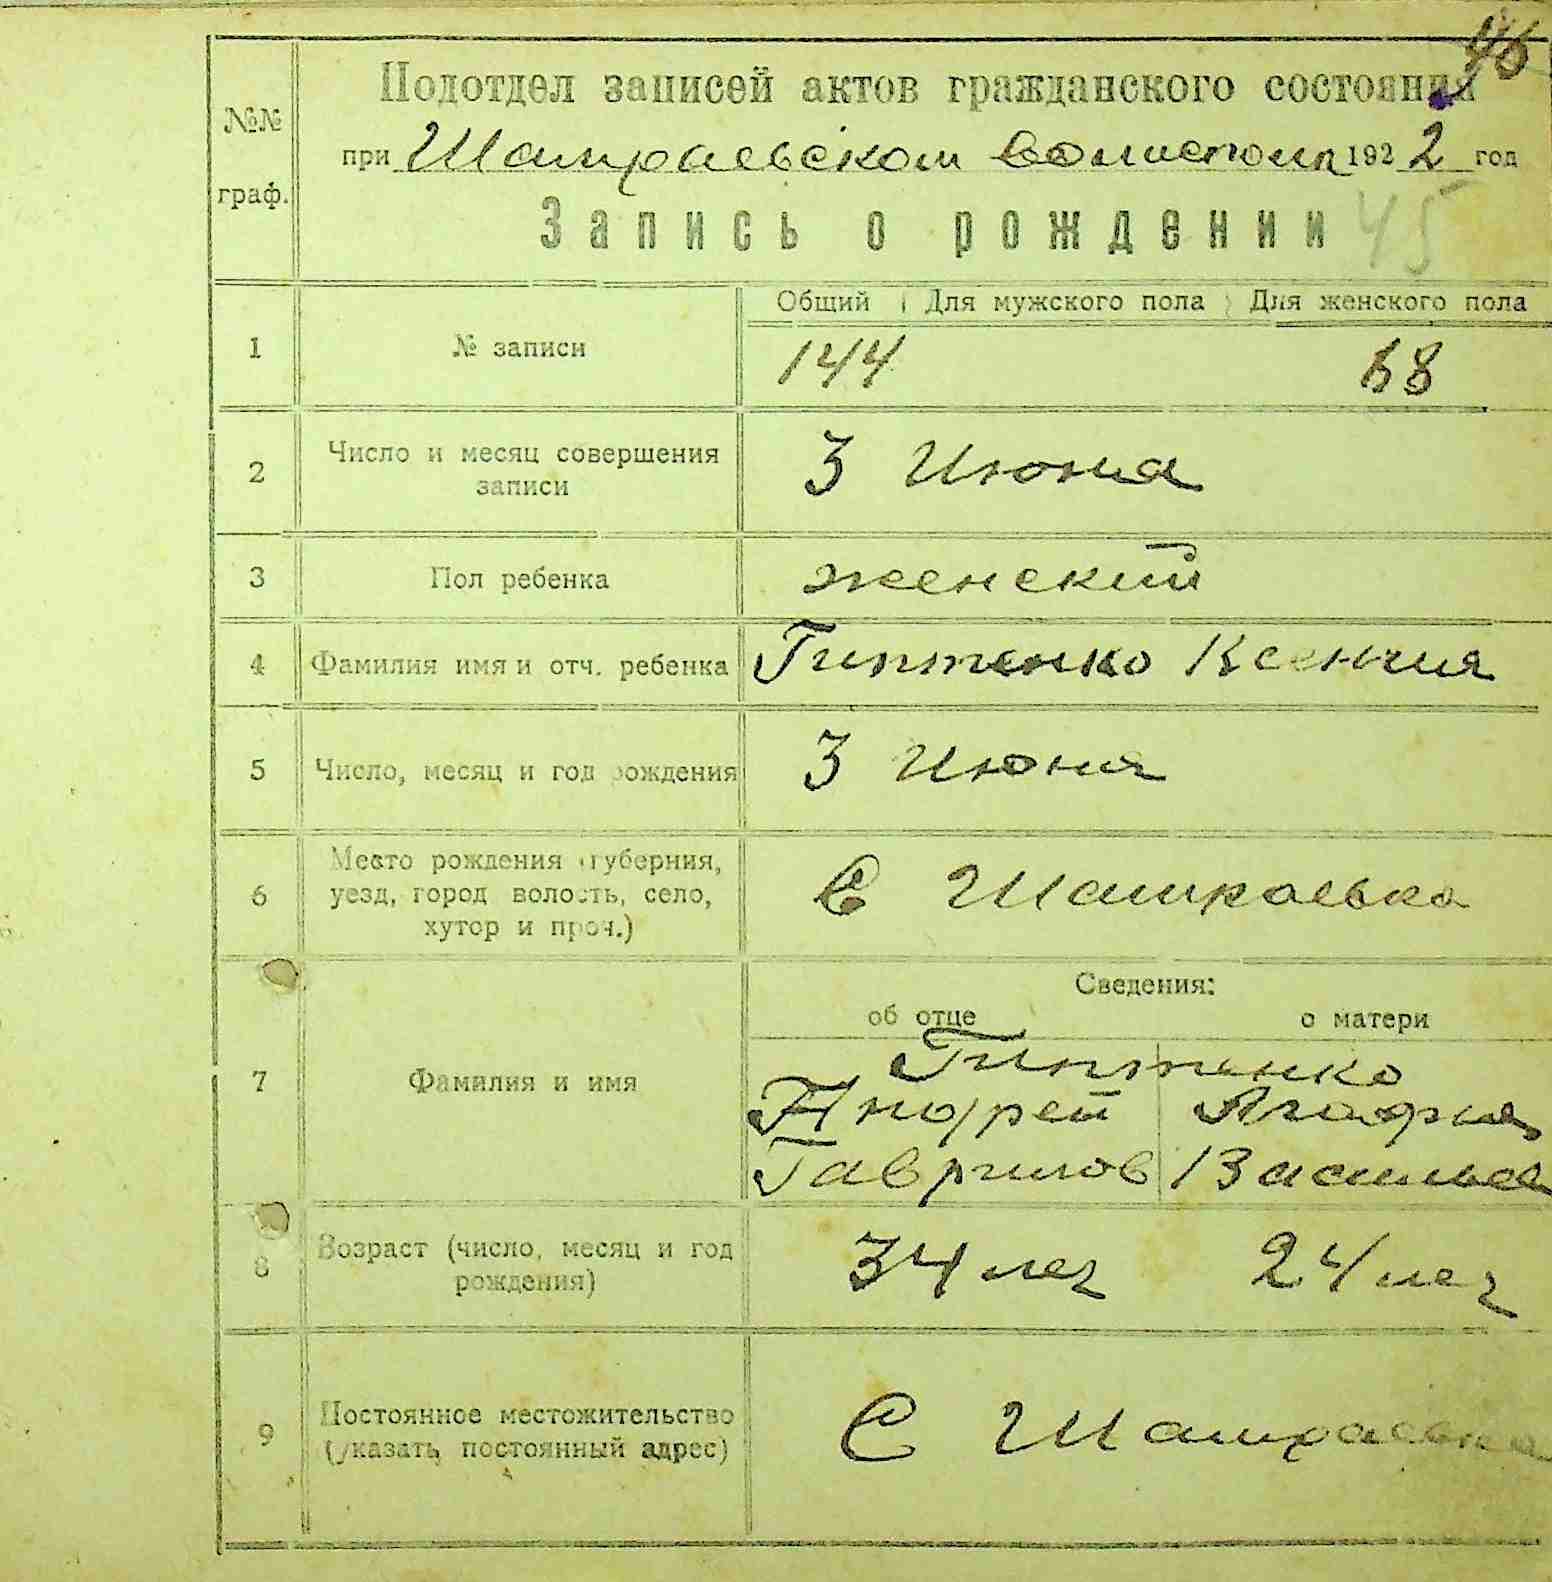 46
Подотдел записей актов гражданского состояния
№№ граф.
при Шамраевском волисполк 1922 год
Запись о рождении 45
Общий Для мужского пола Для женского пола
1 № записи 144 68
2 Число и месяц совершения записи 3 Июня
3 Пол ребенка женский
4 Фамилия имя и отч. ребенка Гиптенко Ксения
5 Число, месяц и год рождения 3 Июня
6 Место рождения (губерния, уезд, город волость, село, хутор и проч.) С Шамраевка
Сведения:
об отце о матери
7 Фамилия и имя Гиптенко
Андрей Агафия
Гаврилов Васильев
8 Возраст (число, месяц и год рождения) 34 лет 24 лет
9 Постоянное местожительство (указать постоянный адрес) С Шамраевка